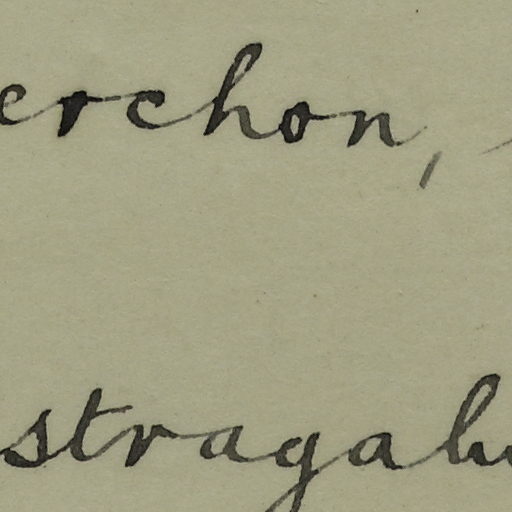 erchon,
stragalu